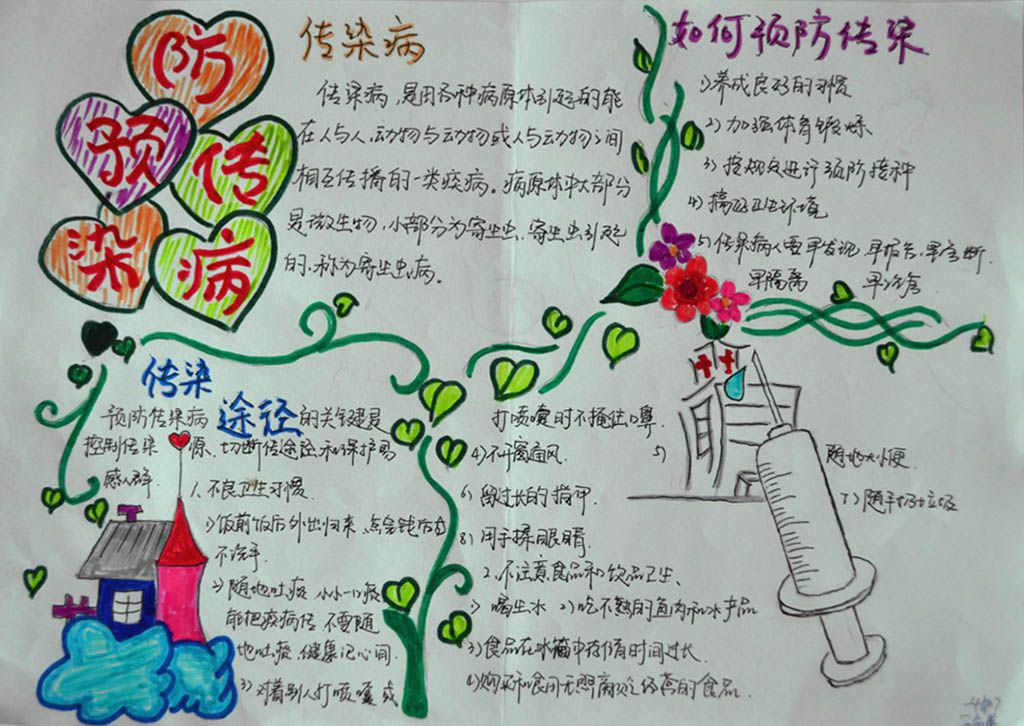 预防传染病
传染病
传染病，是由各种病原体引起的能
在人与人、动物与动物或人与动物之间
相互传播的一类疾病。病原体中大部分
是微生物，小部分为寄生虫，寄生虫引起
的，称为寄生虫病。
如何预防传染
1)养成良好的习惯
2)加强体育锻炼
3)按规定进行预防接种
4)搞好卫生环境
5)传染病人要早发现、早报告、早诊断.
早隔离 早治疗
传染
途径
预防传染病 的关键是
控制传染 源、切断传途径和保护易
感人群.
1.不良卫生习惯.
1)饭前饭后外出归来，点完钱后
不洗手
2)随地吐痰 小小一口痰
能把疾病传 不要随
地吐痰 健康记心间.
3)对着别人打喷嚏或
打喷嚏时不掩住口鼻.
4)不开窗通风
5) 随地大小便.
6)留过长的指甲
7)随手扔垃圾
8)用手揉眼睛.
2.不注意食品和饮品卫生、
1)喝生水 2)吃不熟的鱼肉和水产品
3)食品在冰箱中存储时间过长.
4)购买和食用无照商贩经营的食品.